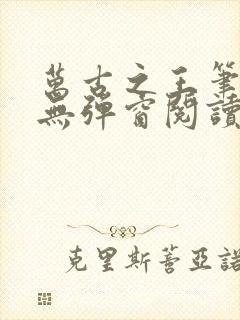 萬古之王筆
無彈窗閱讀
克里斯蒂亞諾